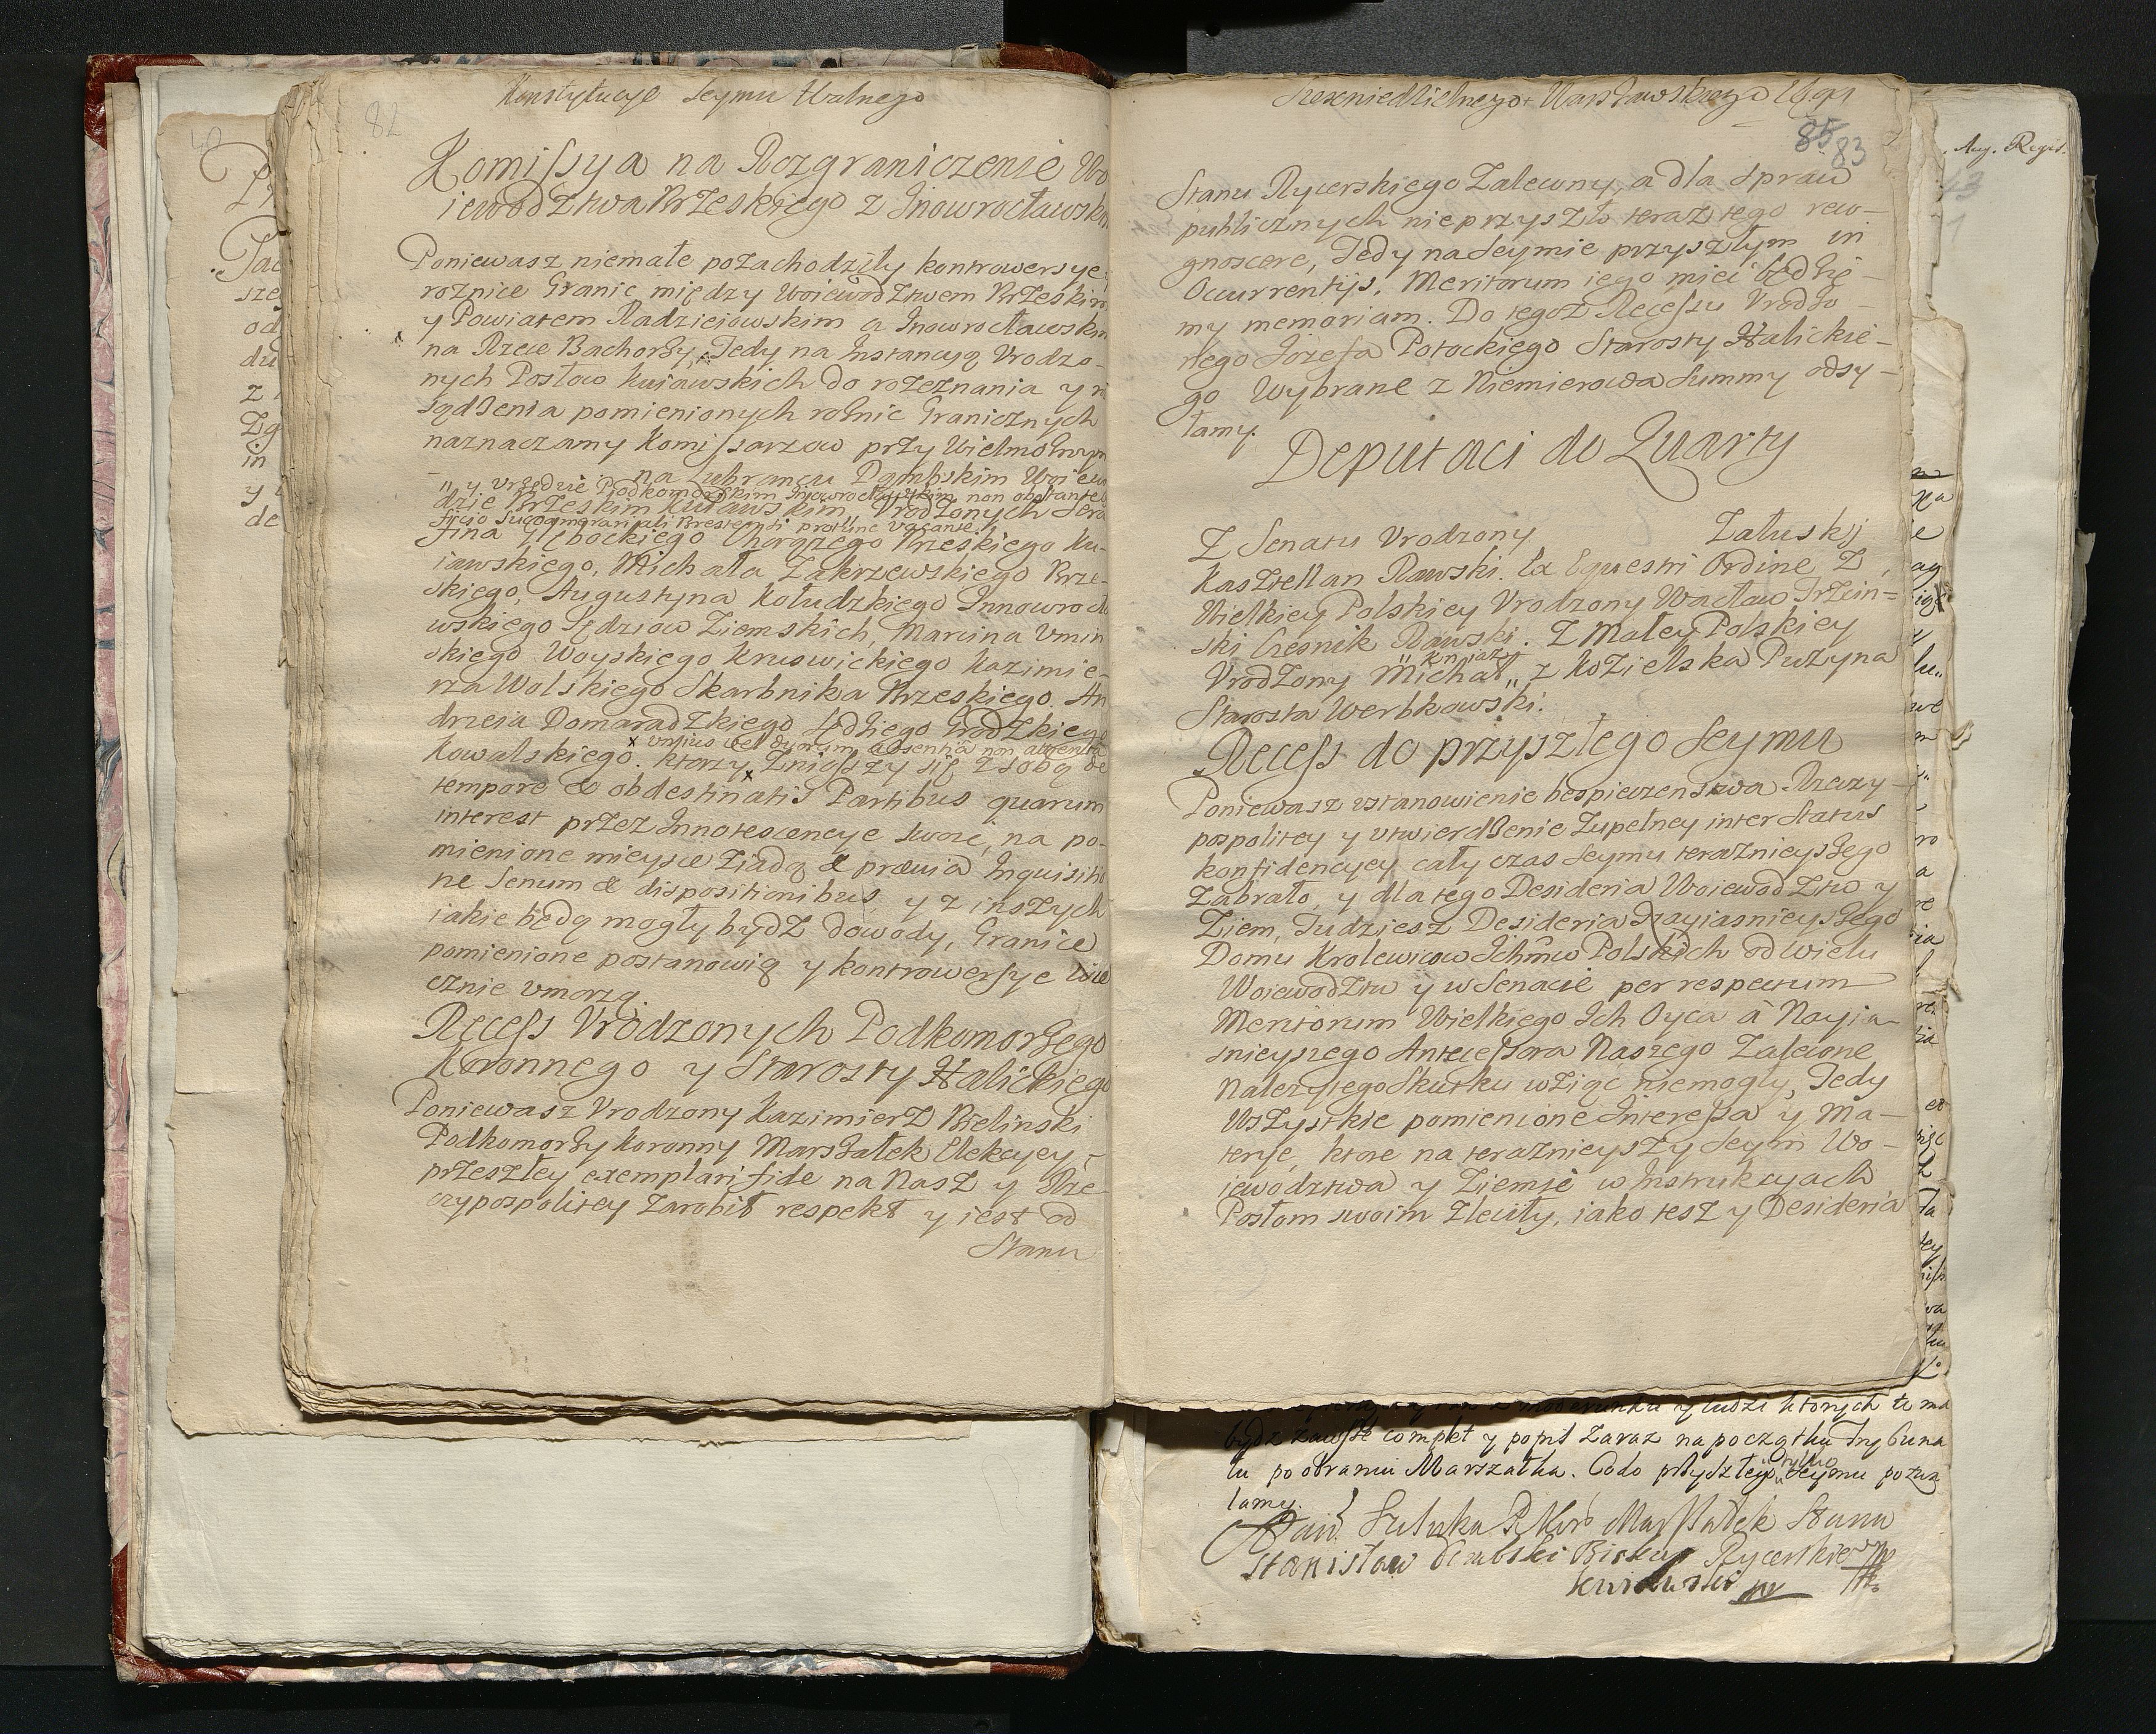 Konstytucye Seymu Walnego
82
Komissya na Rozgraniczenie Wo
iewodztwa Brzeskiego z Inowrocławski
Poniewasz niemałe pozachodziły kontrowersye
roznice Granic między Woiewodztwem Brzeskim
y Powiatem Radzieiowskim a Inowrocławskim
na Rzece Bachorzy, Tedy na Instancyą Vrodzo-
nych Posłow kuiawskich do rozeznania y
sądzenia pomienionych roźnic Granicznych
naznaczamy Komissarzow przy Wielmoźnym
na Lubrancu Dąmbskim Woiewo
„ y vrzędzie Podkomorskim Inowrocławskim non obstante
dzie Brzeskim Kuiawskim „ Vrodzonych Sera
ficio Succamerariali Brestensi pro tunc vacante
fina Głębockiego Chorązego Brzeskiego Ku-
iawskiego, Michała Zakrzewskiego Brze-
skiego, Augustyna Kołudzkiego Innowrocła
wskiego Sędziow Ziemskich, Marcina Vmin
skiego Woyskiego Kruswickiego Kazimie-
rza Wolskiego Skarbnika Brzeskiego. An
drzeia Domaradzkiego Sędziego Grodzkiego
x vnius vel duorum absentia non attenta
Kowalskiego. ktorzy x Zniozszy się z sobą de
tempore & ob destinatis Partibus quarum
interest przez Innotescencye swoie, na po-
mienione mieysce Ziadą & prævia Inquisitio
ne Senum & dispositionibus y z inszych
iakie będą mogły bydz dowody, Granice
pomienione postanowią y kontrowersye wie
cznie vmorzą.
Recess Vrodzonych Podkomorzego
Koronnego y Starosty Halickiego
Poniewasz Vrodzony Kazimierz Bielinski
Podkomorzy Koronny Marszałek Elekcyey
przeszłey exemplari fide na Nasz y Rze-
czypospolitey zarobił respekt y iest od
Stanu
Szescniedzielnego Warszawskiego 1699
85 83
Stanu Rycerskiego Zalecony, a dla spraw
publicznych nieprzyszło teraz tego reco-
gnoscere, Tedy na Seymie przyszłym in
Occurrentijs. Meritorum iego miec będzie-
my memoriam. Do tegoż Recessu Vrodzo-
nego Józefa Potockiego Starosty Halickie-
go Wybrane z Niemierowa Summy odsy-
łamy.
Deputaci do Quarty
Z Senatu Vrodzony Załuskj
Kasztellan Rawski. Ex Equestri Ordine Z
Wielkiey Polskiey Vrodzony Wacław Trzcin=
ski Czesnik Rawski. Z Małey Polskiey
„ kniaź
Vrodzony Michał „ z Kozielska Puzyna
Starosta Werbkowski.
Recess do przyszłego Seymu
Poniewasz vstanowienie bespieczenstwa Rzeczy-
pospolitey y vtwierdzenie zupełney inter Status
konfidencyey cały czas Seymu teraznieyszego
zabrało, y dla tego Desideria Woiewodztw y
Ziem, Tudziesz Desideria Nayiasnieyszego
Domu Krolewicow Ichmw Polskich od wielu
Woiewodztw y w Senacie per respectum
Meritorum Wielkiego Ich Oyca à Nayia-
snieyszego Antecessora Naszego Zalecone
Nalezytego Skutku wziąc niemogły, Tedy
Wszystkie pomienione Interessa y Ma-
terye, ktore na teraznieyszy Seym Wo-
iewodztwa y Ziemie w Instrukcyach
Posłom swoim zleciły, iako tesz y Desideria
Aug. Regis.
moderunku y ludzi ktorych to ma
bydz zawsze complet y popis Zaraz na początku Trybuna
łu po obraniu Marszałka. Co do przyszłego „ Seymu pozwa
lamy.
Marszałek Stanu
Stanisław Dembski Biskup Rycerskiego